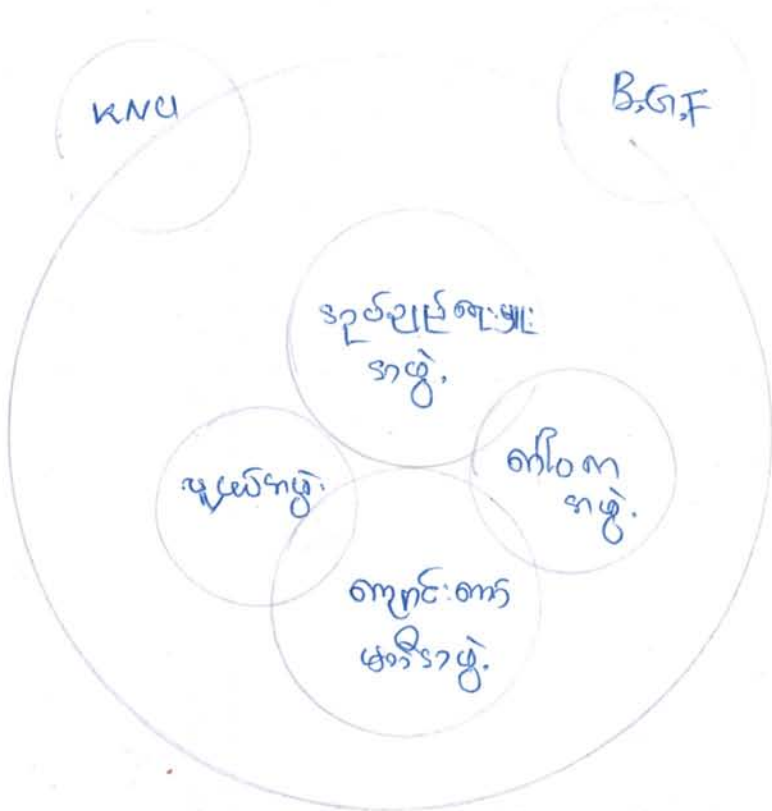 KNU
B,G,F
အုပ်ချုပ်ရေးမှူး
အဖွဲ့.
လူငယ်အဖွဲ့.
ဂေါပက
အဖွဲ့.
ကျောင်းတော်
အဖွဲ့.